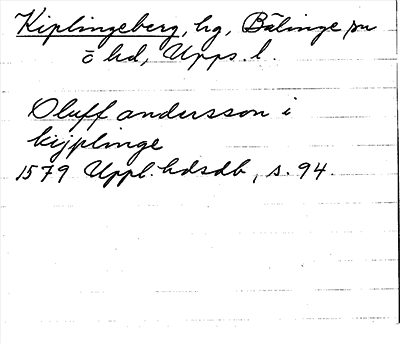 Kiplingeberg, hg, Bälinge sn
ō hd, Upps. l.
Oluff andersson i
kijplinge
1579 Uppl. hdsdb, s. 94.